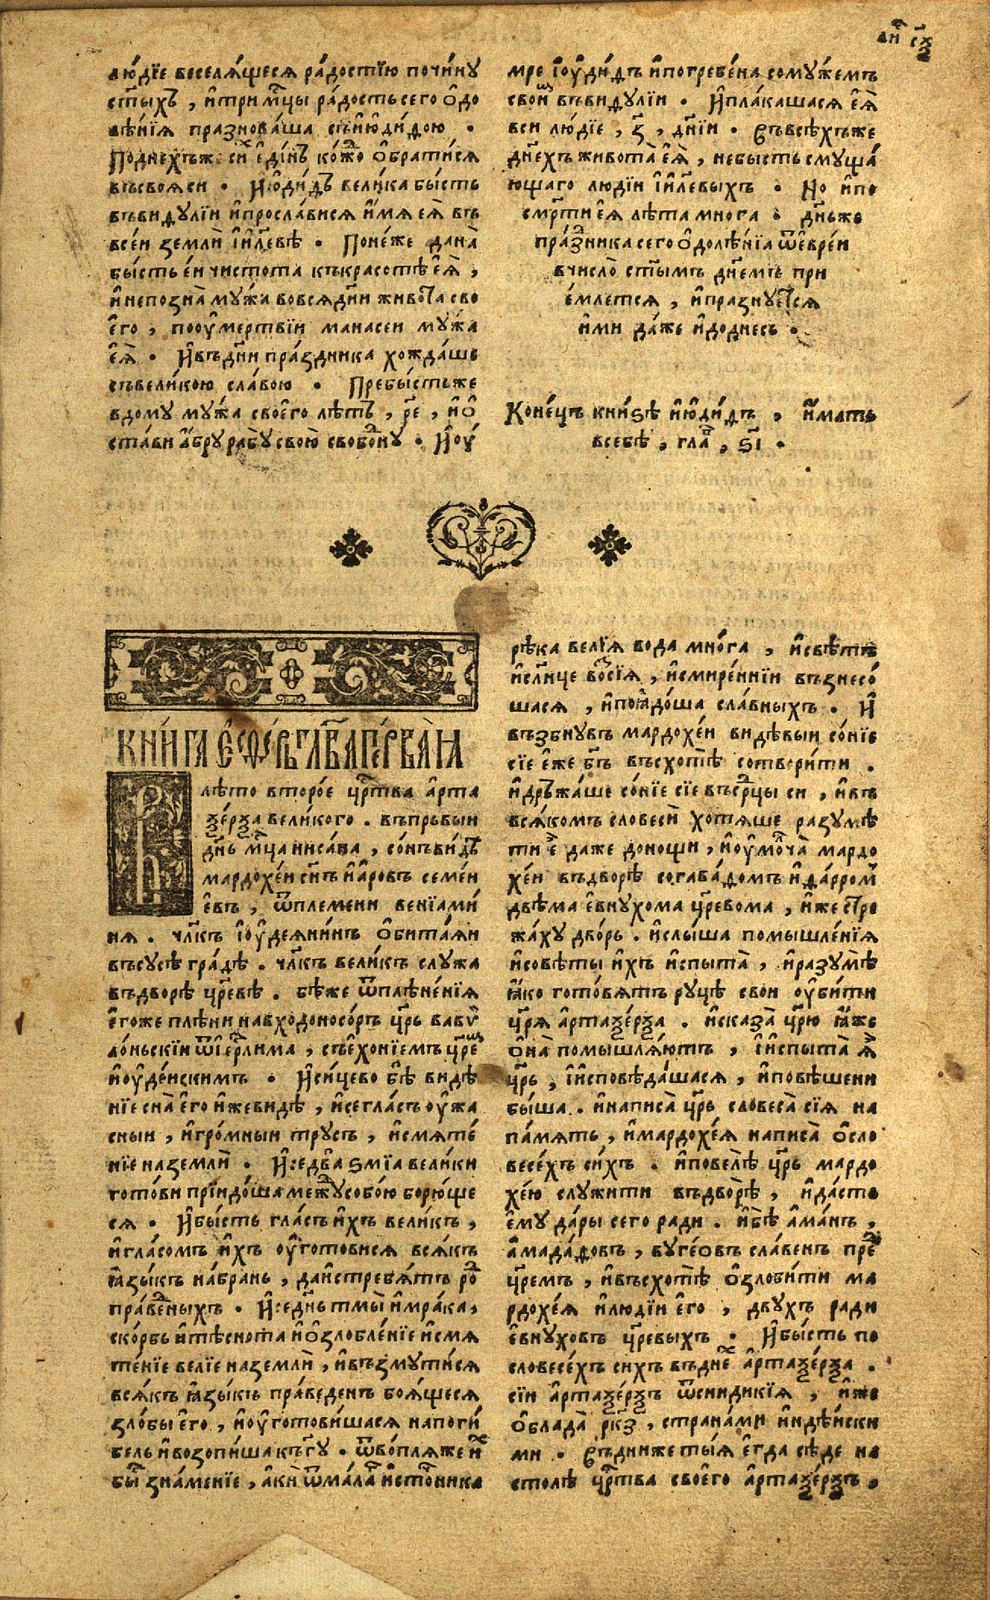 людїе веселѧ́щесѧ ра́достїю почи́ну
ст҃ы́хъ , и҆три мцⷭ҇ы ра́дость сего ѻ҆до
лѣ́нїѧ празнова́ша съи҆юди́ѳою .
По днехъ же си́хъ є҆ди́нъ ко́жⷣо ѻ҆брати́сѧ
въсвоѧси . И҆ю҆ди́ѳъ вели́ка бы́сть
въвиѳулїи и҆просла́висѧ и҆́мѧ еѧ̀ въ
всей землѝ і҆и҆л҃евѣ . Поне́же дана̀
бы́сть ей чистота къкрасотѣ є҆ѧ̀ ,
и҆непозна̀ му́жа во всѧ дн҃и живота̀ сво
є҆го , поѹ҆мертвїи манасеи му́жа
є҆ѧ̀ . И҆въдн҃и пра́здника хожда́ше
съвели́кою сла́вою . Пребы́сть же
вдому му́жа своєго̀ лѣтъ , р҃е , и҆ ѻ҆
ста́ви а҆́бру рабу̀ свою̀ свобо́дну . И҆ ѹ҆
мре і҆ѹ҆ди́ѳъ и҆погребе́на со му́жемъ
свои́мъ въвиѳулїи . И҆пла́кашасѧ є҆ѧ̀
вси лю́дїе , з҃ , дн҃їи . Съвсѣ́хъ же
дн҃ехъ живота̀ є҆ѧ̀ , небысть смуща́
ющаго людїи і҆и҆л҃евыхъ . Но и҆по
смр҃ти еѧ лѣта многа . дн҃ь же
пра́здника сего ѻ҆долѣ́нїа ѿе҆вре́и
вчисло̀ ст҃ымъ дн҃емъ при
е́млетсѧ , и҆празнуетсѧ
и҆ми да́же и҆доднесь .
Коне́цъ кни́ѕѣ и҆юди́ѳъ , и҆́мать
всебѣ̀ , глⷡ҇а , ѕ҃і .
КНИ́ГА Е҆СѲИ́РЬ ГЛАВА̀ ПЕ́РВАѦ
лѣто второ́е цр҃тва а҆рта
ѯе́рѯа вели́кого . въпрьвыи
дн҃ь мцⷭ҇а нисана , со́нъ ви́дѣ
мардохе́и сн҃ъ и҆а҆и́ровъ семе́и
є҆въ , ѿплемени венїами́
нѧ . чл҃къ і҆ѹ҆деѧни́нъ ѻ҆бита́ѧи
въсусѣ гра́дѣ . чл҃къ вели́къ служа
въдворѣ̀ цр҃евѣ . бѣ́ же ѿплѣне́нїѧ
є҆го́же плѣни навходоносо́ръ цр҃ь вавѵ
ло́ньскїи ѿі҆ер҃лима , съе҆хонїемъ цр҃емъ
и҆ѹ҆де́искимъ . И҆си́цево бѣ̀ видѣ́
нїе сна̀ є҆го и҆же видѣ , и҆се гла́съ ѹ҆жа
сныи , и҆гро́мныи тру́съ , и҆смѧте́
нїе на землѝ . И҆се два̀ ѕмїа вели́ки
гото́ви прїидо́ша межⷣу собо́ю борю́ще
сѧ . И҆бы́сть гла́съ и҆́хъ вели́къ ,
и҆гла́сомъ и҆́хъ ѹ҆гото́висѧ всѧ́къ
ꙗ҆зы́къ на́брань , даи҆стребѧ́тъ ро́дъ
пра́веⷣныхъ . И҆се дн҃ь тмы̀ и҆мра́ка ,
ско́рбь и҆тѣснота и҆ѻ҆злобле́нїе и҆смѧ
те́нїе велїе на землѝ , и҆въꙁмути́сѧ
всѧ́къ ꙗ҆зы́къ пра́веденъ боѧ́щесѧ
злобы є҆го̀ , и҆ѹ҆гото́вишасѧ напоги́
бель и҆возопи́ша къ гд҇у . ѿво́плѧ же и҆́хъ
бы́ зна́менїе , а҆кѝ ѿма́ла и҆сто́чника
рѣка велїѧ вода мно́га , и҆свѣтъ
и҆сл҃нце восїѧ̀ , и҆смире́ннїи възнесо́
шасѧ , и҆поꙗ҆до́ша сла́вныхъ . И҆
възбнувъ мардохе́и ви́дѣвыи со́нїе
сїе є҆́же бг҃ъ въсхотѣ̀ сотвори́ти .
и҆дръжа́ше со́нїе сїе въсрⷣцы си , и҆въ
всѧ́комъ словесѝ хотѧ́ше разумѣ
ти є҆̀ даже до нощи , и҆ѹ҆молча̀ мардо
хе́и въдворѣ̀ согаваѳомъ и҆ѳа́рромъ
двѣма є҆вну́хома цр҃евома , и҆́же стре
жа́ху дворъ . и҆слы́ша помышле́нїѧ
и҆совѣ́ты и҆́хъ и҆спыта̀ , и҆разумѣ̀
ꙗ҆ко гото́вѧтъ ру́цѣ свои ѹ҆би́ти
цр҃ѧ а҆ртаѯе́рѯа . и҆сказа̀ цр҃ю ꙗ҆̀же
ѻ҆на̀ помышлѧ́ютъ , і҆и҆спыта̀ ѧ҆̀
цр҃ь , і҆и҆сповѣ́дашасѧ , и҆повѣ́шени
бы́ша . и҆написа̀ цр҃ь словеса̀ сїѧ на
па́мѧть , и҆мардохе́ѧ написа̀ ѻ҆сло
весе́хъ си́хъ . и҆повелѣ̀ цр҃ь мардо
хе́ю служи́ти въдво́рѣ , и҆да́стъ
є҆му да́ры сего ради . и҆бѣ̀ а҆ма́нъ ,
а҆мада́ѳовъ , вуге́овъ сла́венъ преⷣ
цр҃емъ , и҆въсхотѣ̀ ѻ҆злоби́ти ма
рдохе́ѧ и҆люди́и є҆го̀ , двухъ ради
є҆внуховъ цр҃евыхъ . И҆бы́сть по
словесе́хъ сихъ въдне́хъ а҆ртаѯе́рѯа .
сїи а҆ртаѯе́рѯъ ѿсиндикїѧ , и҆же
ѻ҆блада̀ рк҃з , страна́ми и҆ндѣ́иски
ми . Съдни́же ты́ѧ є҆гда сѣ́де на
столѣ̀ цр҃тва своє́го а҆ртаѯе́рѯъ ,